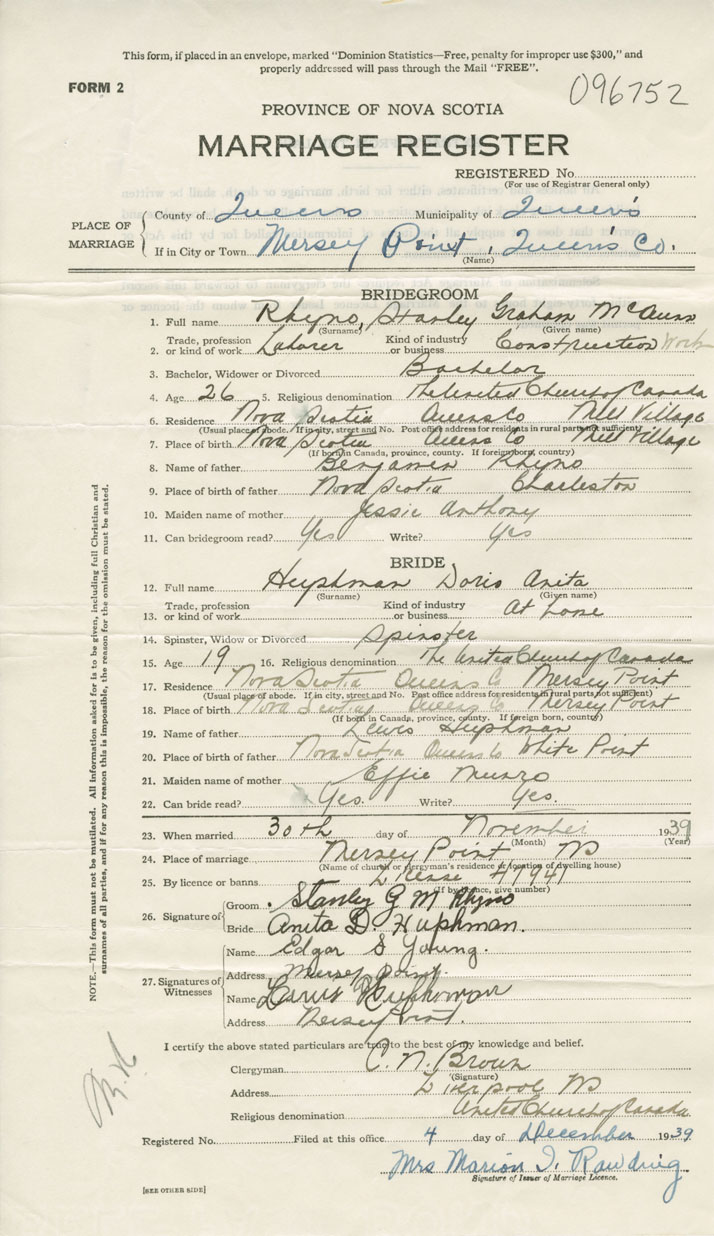 This form, if placed in an envelope, marked "Dominion Statistics—Free, penalty for improper use $300," and
properly addressed will pass through the Mail "FREE".
FORM 2
096752
PROVINCE OF NOVA SCOTIA
MARRIAGE REGISTER
REGISTERED No.
(For use of Registrar General only)
PLACE OF MARRIAGE
County of Queens Municipality of Queen's
If in City or Town Mersey Point, Queen's Co.
(Name)
BRIDEGROOM
1. Full name Rhyno, Stanley Graham McCunn
(Surname) (Given name)
2. Trade, profession or kind of work Laborer Kind of industry or business Construction Work
3. Bachelor, Widower or Divorced Bachelor
4. Age 26 5. Religious denomination The United Church of Canada
6. Residence Nova Scotia Queens Co Mill Village
(Usual place of abode. If in city, street and No. Post office address for residents in rural parts not sufficient)
7. Place of birth Nova Scotia Queens Co Mill Village
(If born in Canada, province, county. If foreign born, country)
8. Name of father Benjamin Rhyno
9. Place of birth of father Nova Scotia Charleston
10. Maiden name of mother Jessie Anthony
11. Can bridegroom read? Yes Write? Yes
BRIDE
12. Full name Huphman Doris Anita
(Surname) (Given name)
13. Trade, profession or kind of work Kind of industry or business At home
14. Spinster, Widow or Divorced Spinster
15. Age 19 16. Religious denomination The United Church of Canada
17. Residence Nova Scotia Queens Co Mersey Point
(Usual place of abode. If in city, street and No. Post office address for residents in rural parts not sufficient)
18. Place of birth Nova Scotia Queens Co Mersey Point
(If born in Canada, province, county. If foreign born, country)
19. Name of father Lewis Huphman
20. Place of birth of father Nova Scotia Queens Co White Point
21. Maiden name of mother Effie Munro
22. Can bride read? Yes. Write? Yes.
23. When married 30th day of November 1939
(Month) (Year)
24. Place of marriage Mersey Point NS
(Name of church or clergyman's residence or location of dwelling house)
25. By licence or banns 41941
(If by licence, give number)
26. Signature of
Groom Stanley G M Rhyno
Bride Anita D. Huphman.
27. Signatures of Witnesses
Name Edgar S Young.
Address Mersey Point.
Name Huphman
Address Mersey Point.
I certify the above stated particulars are true to the best of my knowledge and belief.
Clergyman C. N. Brown
(Signature)
Address Liverpool NS
Religious denomination United Church of Canada
Registered No. Filed at this office 4 day of December 1939
Mrs Marion I. Rawding
Signature of Issuer of Marriage Licence.
[SEE OTHER SIDE]
NOTE.—This form must not be mutilated. All information asked for is to be given, including full Christian and
surnames of all parties, and if for any reason this is impossible, the reason for the omission must be stated.